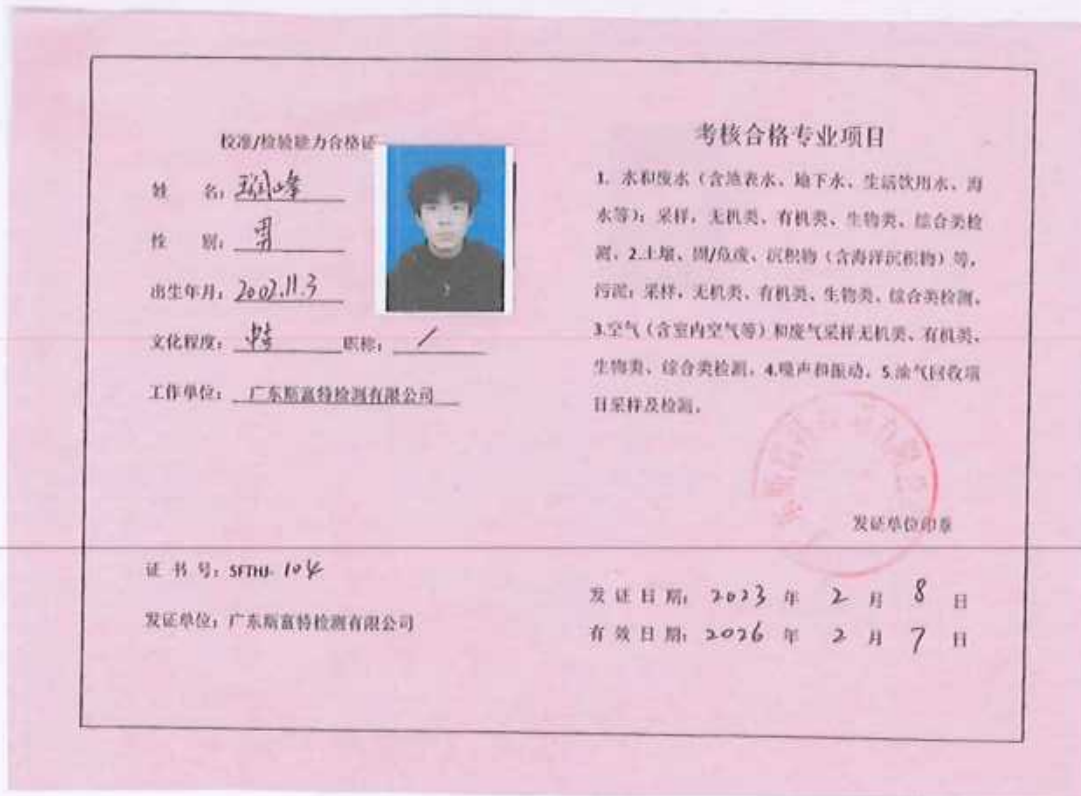 校准/检验能力合格证
姓 名：峰
性 别：男
出生年月：2002.11.3
文化程度：中专 职称：/
工作单位：广东斯富特检测有限公司
证 书 号：SFTHJ-104
发证单位：广东斯富特检测有限公司
考核合格专业项目
1. 水和废水（含地表水、地下水、生活饮用水、海
水等）：采样，无机类、有机类、生物类、综合类检
测，2.土壤、固/危废、沉积物（含海洋沉积物）等，
污泥：采样，无机类、有机类、生物类、综合类检测，
3.空气（含室内空气等）和废气采样无机类、有机类、
生物类、综合类检测，4.噪声和振动，5.油气回收项
目采样及检测。
发证单位印章
发 证 日 期：2023 年 2 月 8 日
有 效 日 期：2026 年 2 月 7 日